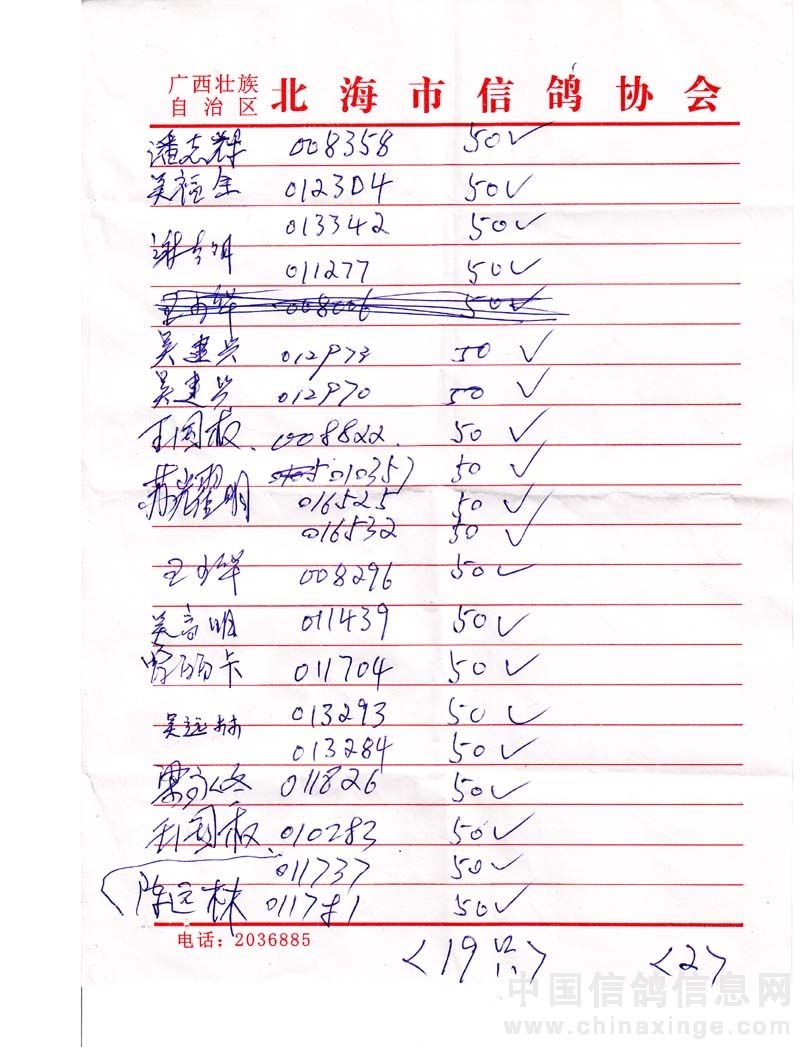 广西壮族
自治区 北海市信鸽协会
潘志辉 008358 50✓
吴福全 012304 50✓
013342 50✓
谢 明
011277 50✓
王少华 008006 50✓
吴建兴 012973 50 ✓
吴建兴 012970 50 ✓
王国权. 008822. 50 ✓
010357 50 ✓
苏光耀明 016525 50 ✓
016532 50 ✓
王少华 008296 50✓
吴高明 011439 50✓
卡 011704 50✓
013293 50 ✓
吴远林
013284 50✓
梁 011826 50✓
王国权 010283 50✓
011737 50✓
陈远林 50✓
电话:2036885
<19只> <2>
中国信鸽信息网
www.chinaxinge.com